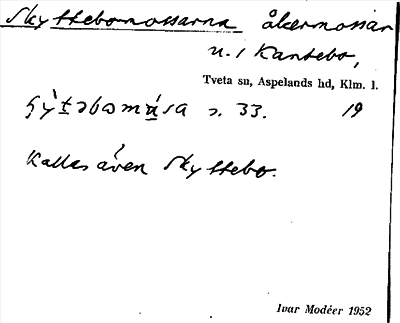 Skyttebomossarna åkermossar
n. / Kantebo,
Tveta sn, Aspelands hd, Klm. l.
s. 33. 19
Kallas även Skyttebo.
Ivar Modéer 1952